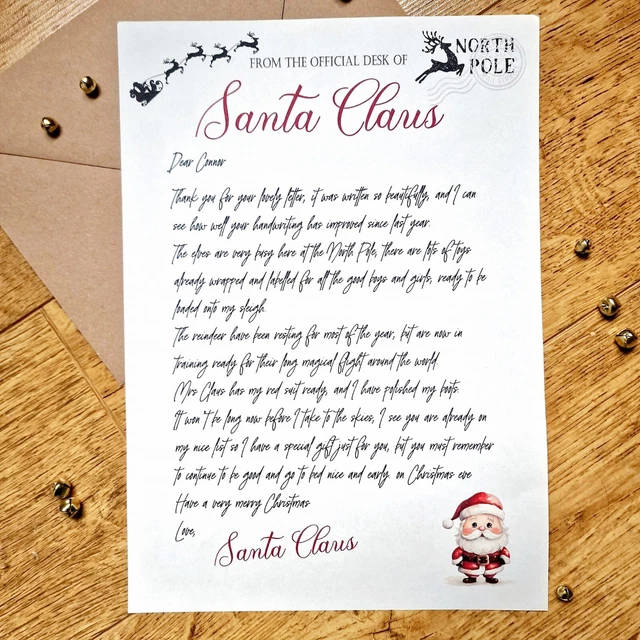 FROM THE OFFICIAL DESK OF
NORTH
POLE
Santa Claus
Dear Connor
Thank you for your lovely letter, it was written so beautifully, and I can
see how well your handwriting has improved since last year.
The elves are very busy here at the North Pole, there are lots of toys
already wrapped and labelled for all the good boys and girls, ready to be
loaded onto my sleigh.
The reindeer have been resting for most of the year, but are now in
training ready for their long magical flight around the world.
Mrs Claus has my red suit ready, and I have polished my boots.
It won't be long now before I take to the skies, I see you are already on
my nice list so I have a special gift just for you, but you must remember
to continue to be good and go to bed nice and early. on Christmas eve
Have a very merry Christmas
Love,
Santa Claus